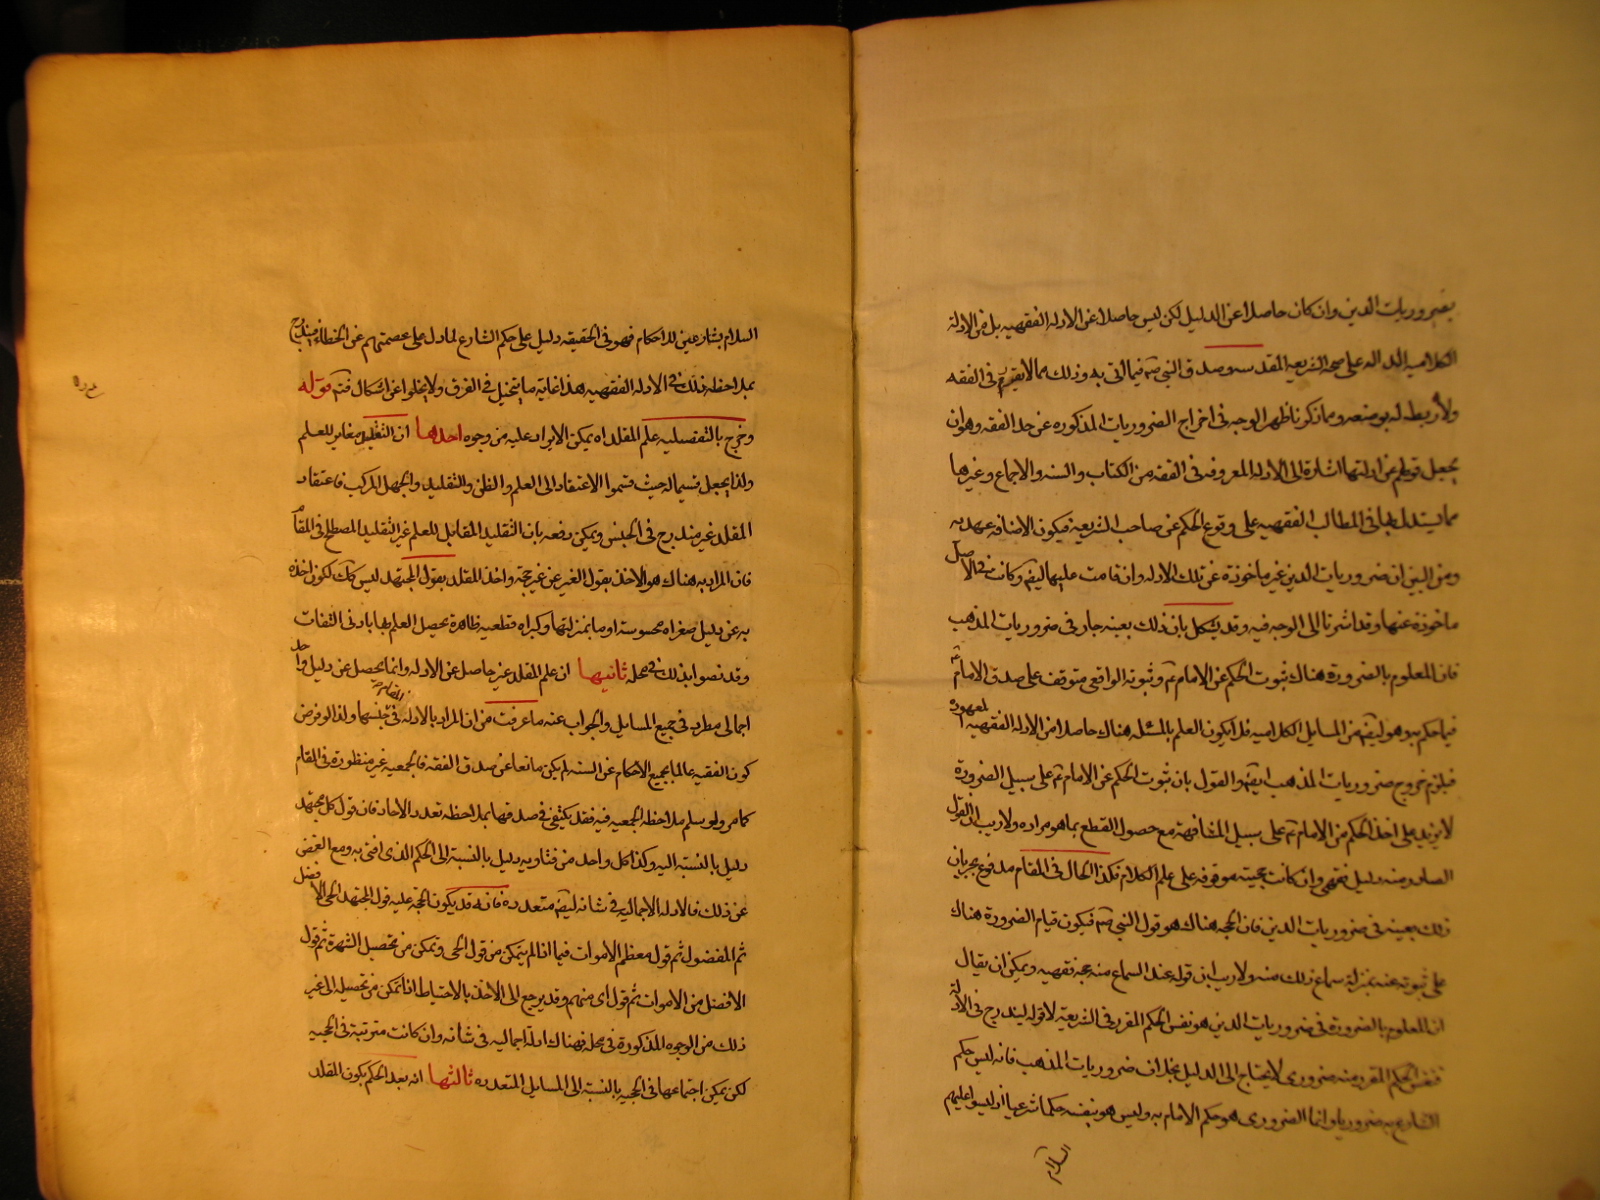 بضروريات الدين وان كان حاصلا عن الدليل لكن ليس حاصلا عن الادلة الفقهيه بل من الادلة
الكلاميه الداله على صحة الشريعه المقدسه وصدق النبي صه فيما اتى به وذلك مما لا يقرر في الفقه
ولا ربط له بوضعه ومما ذكرنا ظهر الوجه في اخراج الضروريات المذكوره عن حد الفقه وهو ان
يجعل قولهم عن ادلتها اشارة الى الادلة المعروفه في الفقه من الكتاب والسنه والاجماع وغيرها
مما يستدل بها في المطالب الفقهيه على وقوع الحكم عن صاحب الشريعه فيكون الاضافه عهديه
ومن البين ان ضروريات الدين غير ماخوذة عن تلك الادله وان قامت عليها ايضا وكانت في الاصل
ماخوذة عنها وقد اشرنا الى الوجه فيه وقد يشكل بان ذلك بعينه جار في ضروريات المذهب
فان المعلوم بالضرورة هناك ثبوت الحكم عن الامام عم وثبوته الواقعي متوقف على صدق الامام عم
فيما حكم به وهو ايضا من المسايل الكلاميه فلا يكون العلم بالمسئله هناك حاصلا من الادلة الفقهيه المعهودة
فيلزم خروج ضروريات المذهب ايضا والقول بان ثبوت الحكم عن الامام عم على سبيل الضرورة
لا يزيد على اخذ الحكم من الامام عم على سبيل المشافهة مع حصول القطع بما هو مراده ولا ريب ان القول
الصادر منه دليل فقهي وان كانت حجيته موقوفه على علم الكلام فكذا الحال في المقام مدفوع بجريان
ذلك بعينه في ضروريات الدين فان الحجه هناك هو قول النبي صه فيكون قيام الضرورة هناك
على ثبوته عنه بمنزلة سماع ذلك منه ولا ريب ان قوله عند السماع منه حجه فقهيه ويمكن ان يقال
ان المعلوم بالضرورة في ضروريات الدين هو نفس الحكم المقرر في الشريعة لا قوله ليندرج في الادلة
فنفس الحكم المقرر منه ضروري لا يحتاج الى الدليل بخلاف ضروريات المذهب فانه ليس حكم
الشارع به ضروريا وانما الضروري هو حكم الامام به وليس هو بنفسه حكما شرعيا اذ ليسوا عليهم
السلام
السلام بشارعين للاحكام فهو في الحقيقه دليل على حكم الشارع لما دل على عصمتهم عن الخطاء فيندرج
بملاحظه ذلك في الادلة الفقهيه هذا غاية ما يتخيل في الفرق ولا يخلوا عن اشكال فتم قوله
وخرج بالتفصيليه علم المقلد اه يمكن الايراد عليه من وجوه احدها ان التقليد مغاير للعلم
ولذا يجعل قسيما له حيث قسموا الاعتقاد الى العلم والظن والتقليد والجهل المركب فاعتقاد
المقلد غير مندرج في الجنس ويمكن دفعه بان التقليد المقابل للعلم غير التقليد المصطلح في المقام
فان المراد به هناك هو الاخذ بقول الغير عن غير حجة واخذ المقلد بقول المجتهد ليس كك لكون اخذه
به عن دليل صغراه محسوسة او ما بمنزلتها وكبراه قطعيه ظاهرة يحصل العلم بها بادنى التفات
وقد نصوا بذلك في محله ثانيها ان علم المقلد غير حاصل عن الادله وانما يحصل عن دليل واحد
اجمالي مطرد في جميع المسايل والجواب عنه ما عرفت من ان المراد بالادله في المقام جنسها ولذا لو فرض
كون الفقيه عالما بجميع الاحكام عن السنه لم يكن مانعا عن صدق الفقه فالجمعيه غير منظورة في المقام
كما مر ولو سلم ملاحظه الجمعيه فيه فقد يكتفى في صدقها بملاحظه تعدد الاحاد فان قول كل مجتهد
دليل بالنسبه اليه وكذا كل واحد من فتاويه دليل بالنسبة الى الحكم الذي افتى به ومع الغض
عن ذلك فالادلة الاجماليه في شانه ايضا متعدده فانه قد يكون الحجه عليه قول المجتهد الحي الافضل
ثم المفضول ثم قول معظم الاموات فيما اذا لم يتمكن من قول الحي وتمكن من تحصيل الشهرة ثم قول
الافضل من الاموات ثم قول اي منهم وقد يرجع الى الاخذ بالاحتياط اذا تمكن من تحصيله الى غير
ذلك من الوجوه المذكورة في محله فهناك ادلة اجماليه في شانه وان كانت مترتبة في الحجيه
لكن يمكن اجتماعها في الحجيه بالنسبة الى المسايل المتعدده ثالثها انه بعد الحكم بكون المقلد